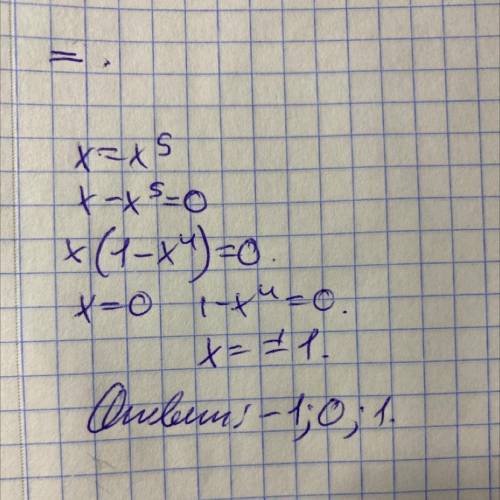 = .
x=x⁵
x-x⁵=0
x(1-x⁴)=0.
x=0 1-x⁴=0.
x=±1.
Ответ: -1;0;1.